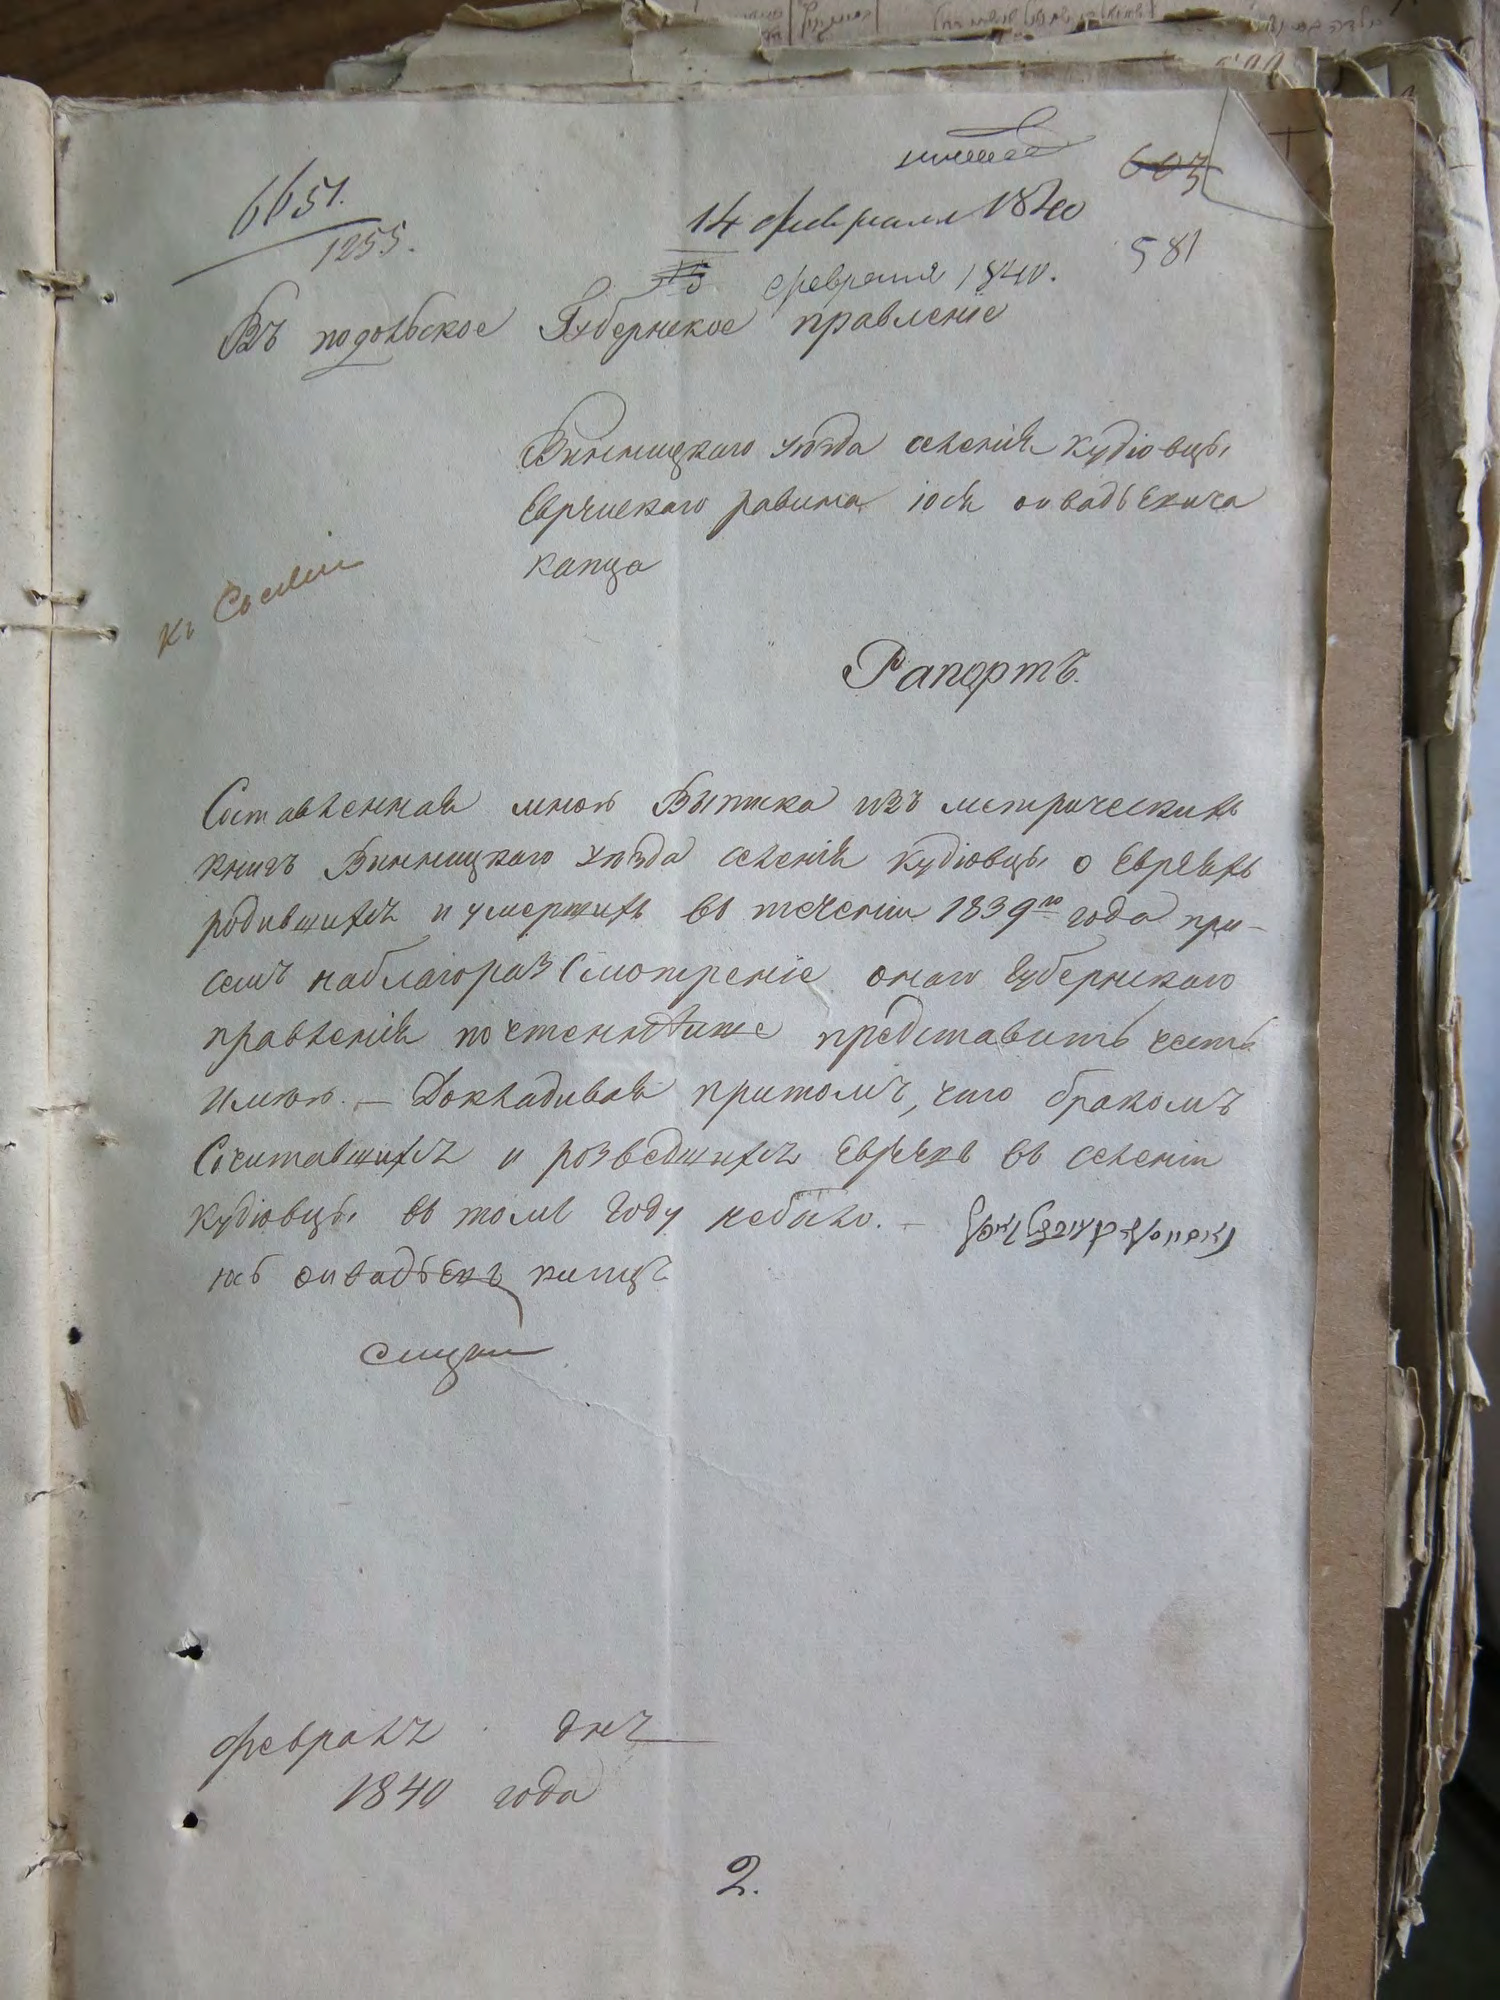 6651.
1255.
14 февраля 1840
603
581
15 февраля 1840.
Въ подольское Губернское правленіе
Винницкаго уѣзда селенія кудіовцы
Еврейскаго равина іося овадьевича
капца
Рапортъ.
Составленная мною Выписка изъ метрическихъ
книгъ Винницкаго уѣзда селенія кудіовцы о Евреяхъ
родившихъ и умершихъ въ теченіи 1839го года при
семъ на благоразсмотреніе онаго Губернскаго
правленія почтеннѣише представить честь
имѣю. – Докладивая притомъ, что бракомъ
Считавшихъ и розведшихъ Евреевъ въ селеніи
кудіовцы въ томъ году небыло. –
февраля дня
1840 года
2.